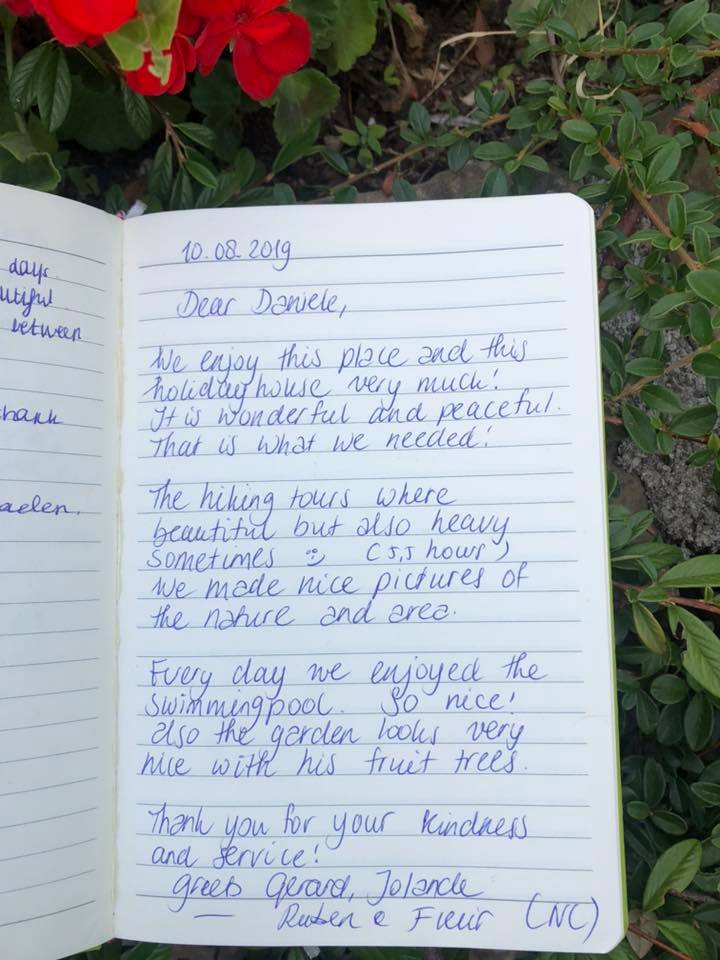 days
utiful
between
thank
aelen.
10.08.2019
Dear Daniele,
We enjoy this place and this
holidayhouse very much!
It is wonderful and peaceful.
That is what we needed!
The hiking tours where
beautiful but also heavy
sometimes :) (5,5 hours)
We made nice pictures of
the nature and area.
Every day we enjoyed the
swimmingpool. So nice!
also the garden looks very
nice with his fruit trees.
Thank you for your kindness
and service!
greets Gerard, Jolande
Ruben e Fleur (NL)